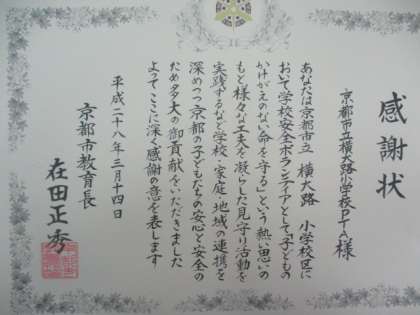 感謝状
京都市立横大路小学校PTA様
あなたは京都市立 横大路 小学校区に
おいて学校安全ボランティアとして「子どもの
かけがえのない命を守る」という熱い思いの
もと様々な工夫を凝らした見守り活動を
実践するなど学校・家庭・地域の連携を
深めつつ京都の子どもたちの安心と安全の
ため多大の御貢献をいただきました
よってここに深く感謝の意を表します
平成二十八年三月十四日
京都市教育長
在田正秀